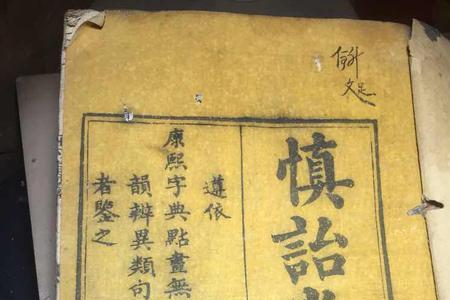 慎詒
遵依
康熙字典點畫無
韻辨異類句
者鑒之